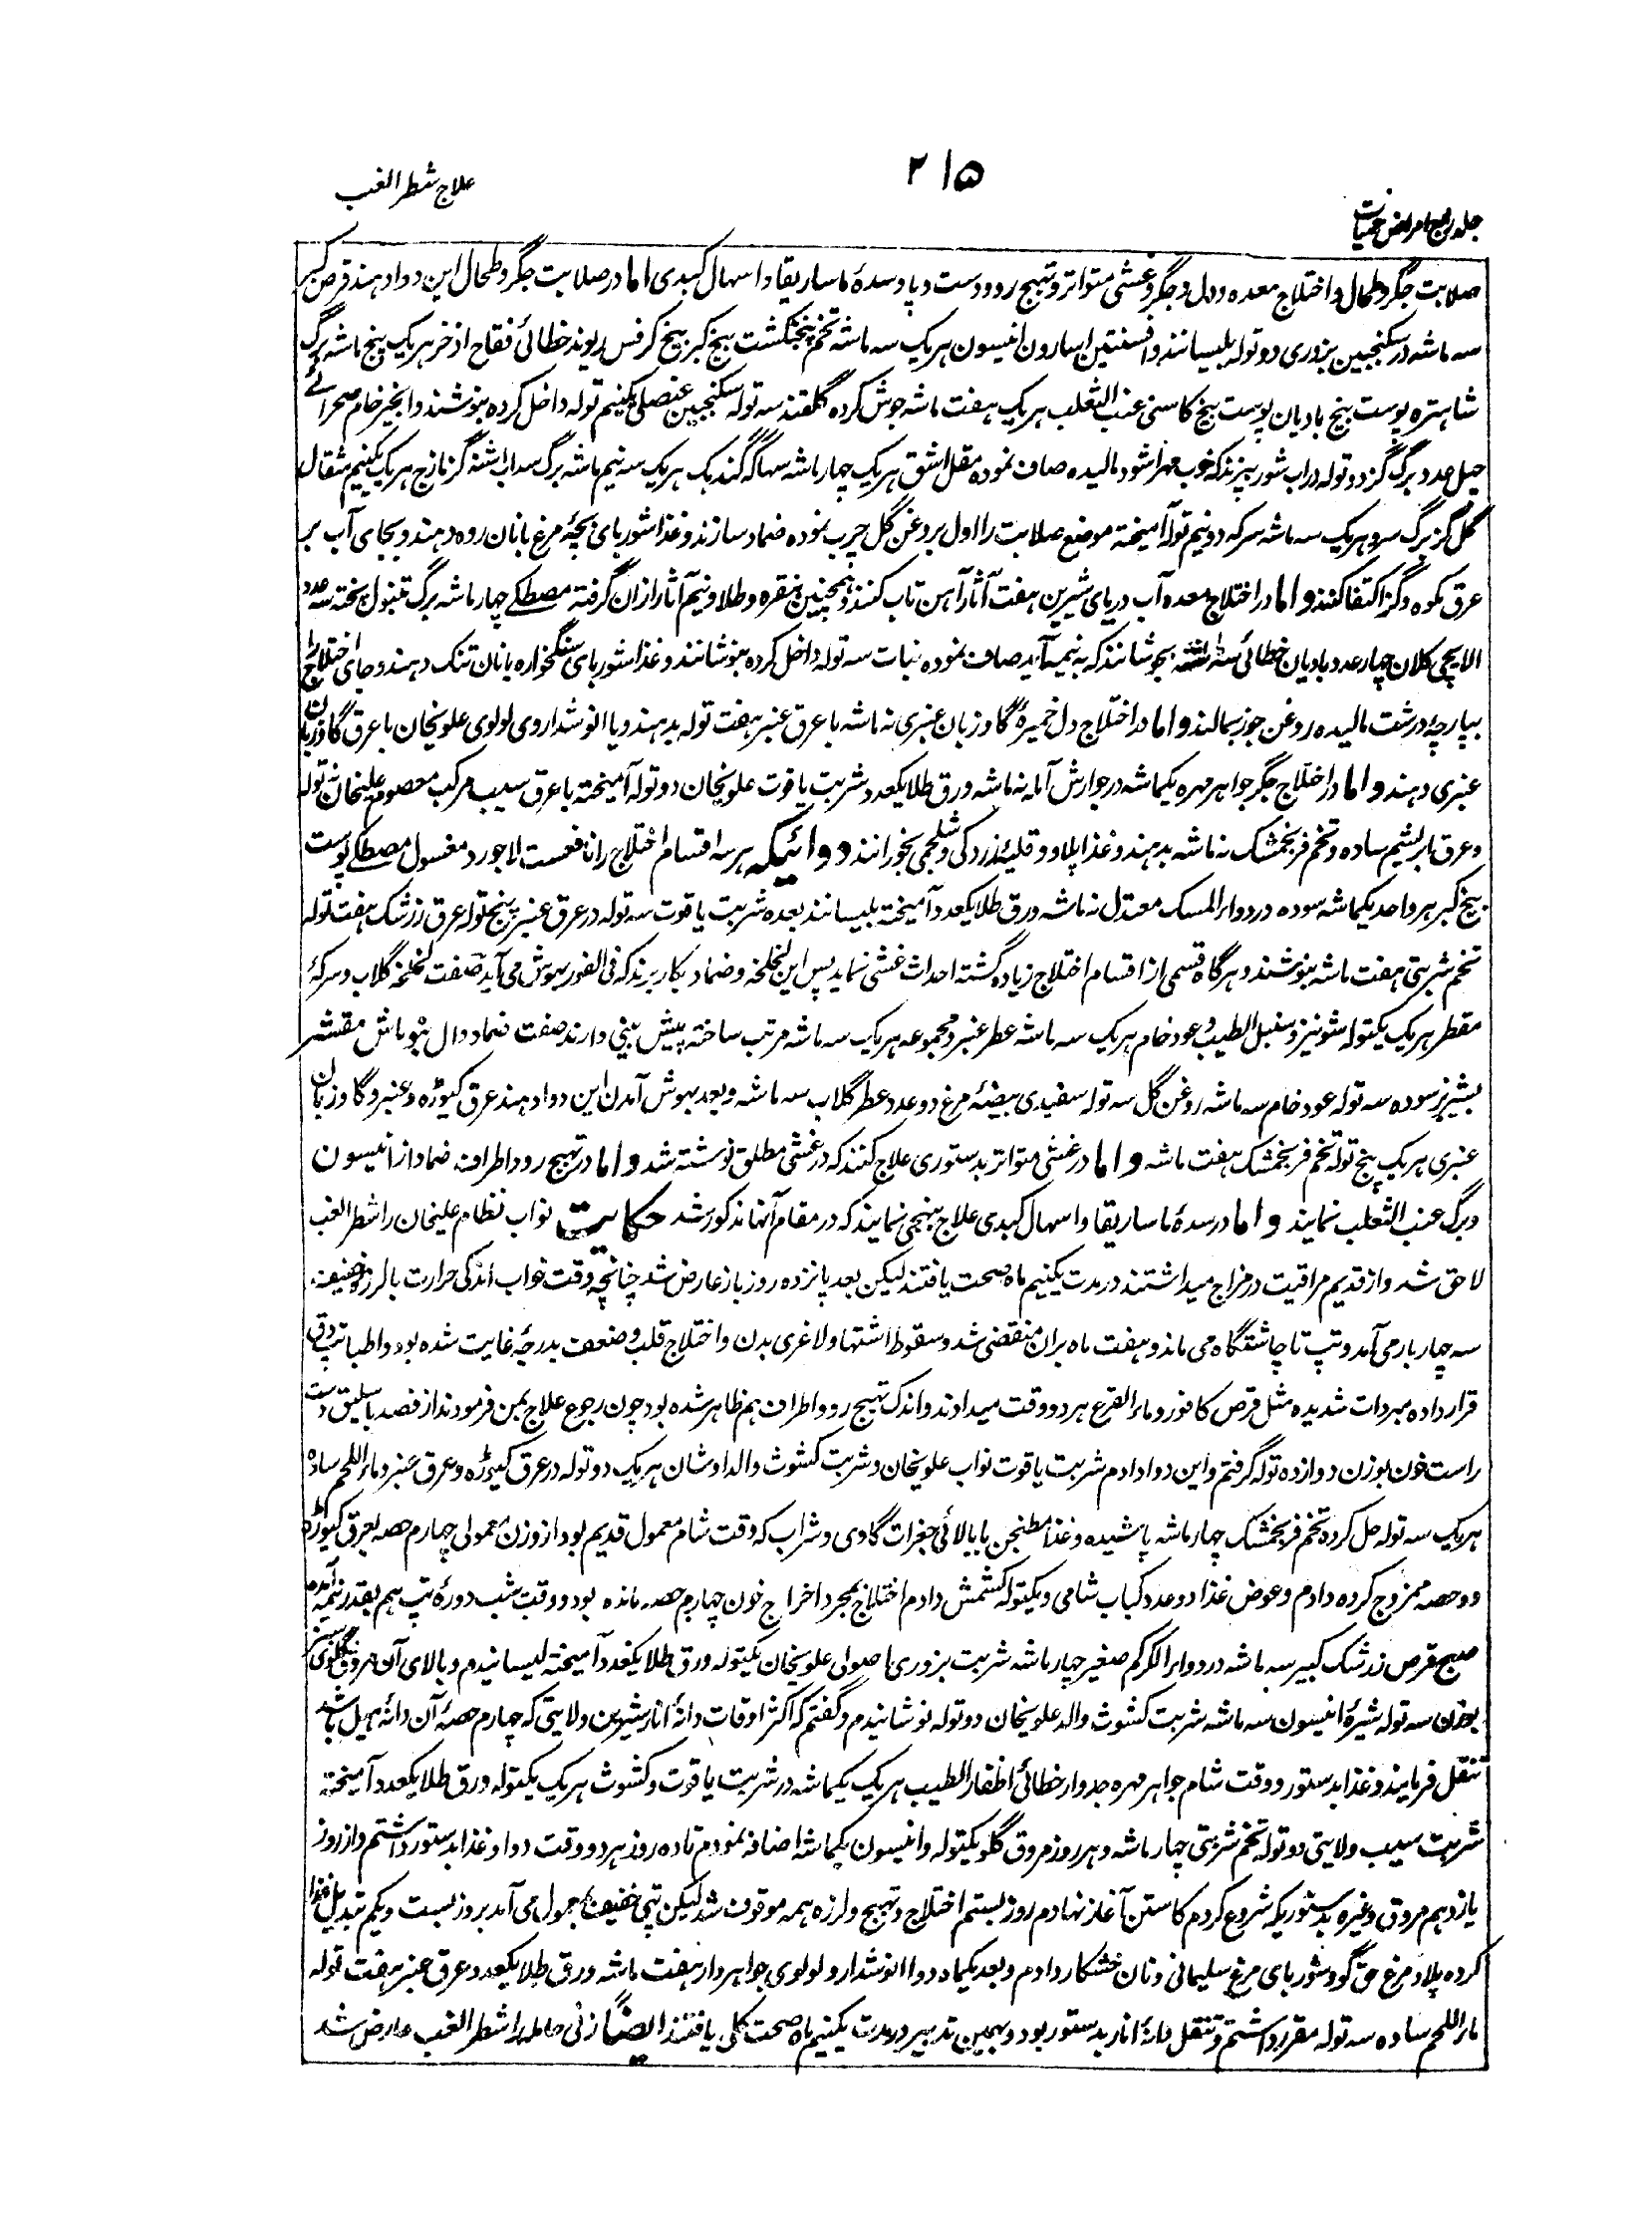 علاج شطر الغب
۲۱۵
جلد رابع امراض حمیات
صلابت جگر و طحال و اختلاج معده و دل و جگر و غشی متواتر و تهبج رو و دست و پا و سدۀ ماساریقا و اسهال کبدی اما در صلابت جگر و طحال این دوا دهند قرص کبر
سه ماشه در سکنجبین بزوری دو توله بلیسانند و افسنتین اسارون انیسون هریک سه ماشه تخم پنجنکشت بیخ کبر بیخ کرفس ریوند خطائی فقاح اذخر هریک پنج ماشه برگ
شاهتره پوست بیخ بادیان پوست بیخ کاسنی عنب الثعلب هریک هفت ماشه جوش کرده گلقند سه توله سکنجبین عنصلی یکنیم توله داخل کرده بنوشند و انجیر خام صحرائی
چهل عدد برگ گز دو توله در اب شور بپزند که خوب مهرا شود مالیده صاف نموده مقل اشق هریک چهار ماشه سهاگه گندهک هریک سه نیم ماشه برگ سداب اشنه گزنازج هریک یکنیم مثقال
گل گز برگ سرو هریک سه ماشه سرکه دو نیم توله آمیخته موضع صلابت را اول بروغن گل چرب نموده ضماد سازند و غذا شوربای بچۀ مرغ با نان روه دهند و بجای آب بر
عرق مکوه و گز اکتفا کنند و اما در اختلاج معده آب دریای شیرین هفت آثار آهن تاب کنند و همچنین بنقره و طلا و نیم آثار ازان گرفته مصطکی چهار ماشه برگ تنبول پخته سه عدد
الایچی کلان چهار عدد بادیان خطائی سه ماشه بجوشانند که به نیمه آید صاف نموده نبات سه توله داخل کرده بنوشانند و غذا شوربای سنگخواره با نان تنک دهند و جای اختلاج را
بپارچۀ درشت مالیده روغن جوز بمالند و اما در اختلاج دل خمیرۀ گاوزبان عنبری نه ماشه با عرق عنبر هفت توله بدهند و یا انوشداروی لولوی علویخان با عرق گاوزبان
عنبری دهند و اما در اختلاج جگر جواهر مهره یکماشه در جوارش آمله نه ماشه ورق طلا یکعدد شربت یاقوت علویخان دو توله آمیخته با عرق سیب مرکب معصوم علیخان نه توله
و عرق بابریشم ساده و تخم فرنجمشک نه ماشه بدهند و غذا پلاو و قلیۀ زردکی و شلجمی بخورانند دوائیکه هر سه اقسام اختلاج را نافعست لاجورد مغسول مصطکی پوست
بیخ کبر هر واحد یکماشه سوده در دواء المسک معتدل نه ماشه ورق طلا یکعدد آمیخته بلیسانند بعده شربت یاقوت سه توله در عرق عنبر پنجتوله عرق زرشک هفت توله
تخم شربتی هفت ماشه بنوشند و هرگاه قسمی از اقسام اختلاج زیاده گشته احداث غشی نماید پس این لخلخه و ضماد بکار برند که فی الفور بهوش می آید صفت لخلخه گلاب و سرکۀ
مقطر هریک یکتوله شونیز و سنبل الطیب و عود خام هریک سه ماشه عطر عنبر و مجموعه هریک سه ماشه مرتب ساخته پیش بینی دارند صفت ضماد دال نو ماش مقشر
بشیر بز سوده سه توله عود خام سه ماشه روغن گل سه توله سفیدی بیضۀ مرغ دو عدد عطر گلاب سه ماشه و بعد بهوش آمدن این دوا دهند عرق کیوڑه و عنبر و گاوزبان
عنبری هریک پنج توله تخم فرنجمشک هفت ماشه و اما در غشی متواتر بدستوری علاج کنند که در غشی مطلق نوشته شد و اما در تهبج رو و اطراف ضماد از انیسون
و برگ عنب الثعلب نمایند و اما در سدۀ ماساریقا و اسهال کبدی علاج بنهجی نمایند که در مقام آنها مذکور شد حکایت نواب نظام علیخان را شطر الغب
لاحق شد و از قدیم مراقیت در مزاج میداشتند در مدت یکنیم ماه صحت یافتند لیکن بعد پانزده روز باز عارض شد چنانچه وقت خواب اندکی حرارت بالرزۀ خفیف
سه چهار بار می آمد و تپ تا چاشتگاه می ماند و هفت ماه بران منقضی شد و سقوط اشتها و لاغری بدن و اختلاج قلب و ضعف بدرجۀ غایت شده بود و اطبا تپ دق
قرار داده مبردات شدیده مثل قرص کافور و ماء القرع هر دو وقت میدادند و اندک تهبج رو و اطراف هم ظاهر شده بود چون رجوع علاج بمن فرمودند از فصد باسلیق دست
راست خون بوزن دوازده توله گرفتم و این دوا دادم شربت یاقوت نواب علویخان و شربت کشوث والد اوشان هریک دو توله در عرق کیوڑه و عرق عنبر و ماء اللحم ساده
هریک سه توله حل کرده تخم فرنجمشک چهار ماشه پاشیده و غذا مطنجن با بالائی جغرات گاوی و شراب که وقت شام معمول قدیم بود از وزن معمولی چهارم حصه بعرق کیوڑه
دو حصه ممزوج کرده دادم و عوض غذا دو عدد کباب شامی و یکتوله کشمش دادم اختلاج بمجرد اخراج خون چهارم حصه مانده بود و وقت شب دورۀ تپ هم بقدر نیمه آمده
صبح قرص زرشک کبیر سه ماشه در دواء الکرکم صغیر چهار ماشه شربت بزوری اصولی علویخان یکتوله ورق طلا یکعدد آمیخته لیسانیدم و بالای آن مروق گلوی سبز
بوزن سه توله شیرۀ انیسون سه ماشه شربت کشوث والد علویخان دو توله نوشانیدم و گفتم که اکثر اوقات دانۀ انار شیرین ولایتی که چهارم حصۀ آن دانۀ هیل باشد
تنقل فرمایند و غذا بدستور و وقت شام جواهر مهره جدوار خطائی اظفار الطیب هریک یکماشه در شربت یاقوت و کشوث هریک یکتوله ورق طلا یکعدد آمیخته
شربت سیب ولایتی دو توله تخم شربتی چهار ماشه و هر روز مروق گلو یکتوله و انیسون یکماشه اضافه نمودم تا ده روز هر دو وقت دوا و غذا بدستور داشتم و از روز
یازدهم مروق وغیره بدستوریکه شروع کردم کاستن آغاز نهادم روز بستم اختلاج و تهبج و لرزه همه موقوف شد لیکن تپی خفیف بمعمول می آمد بروز بست و یکم تبدیل غذا
کرده پلاو مرغ حق گو و شوربای مرغ سلیمانی و نان خشکار دادم و بعد یکماه دوا انوشدارو لولوی جواهردار هفت ماشه ورق طلا یکعدد و عرق عنبر هفت توله
ماء اللحم ساده سه توله مقرر داشتم و تنقل دانۀ انار بدستور بود و بهمین تدبیر در مدت یکنیم ماه صحت کلی یافتند ایضاً زنی حامله را شطر الغب عارض شد